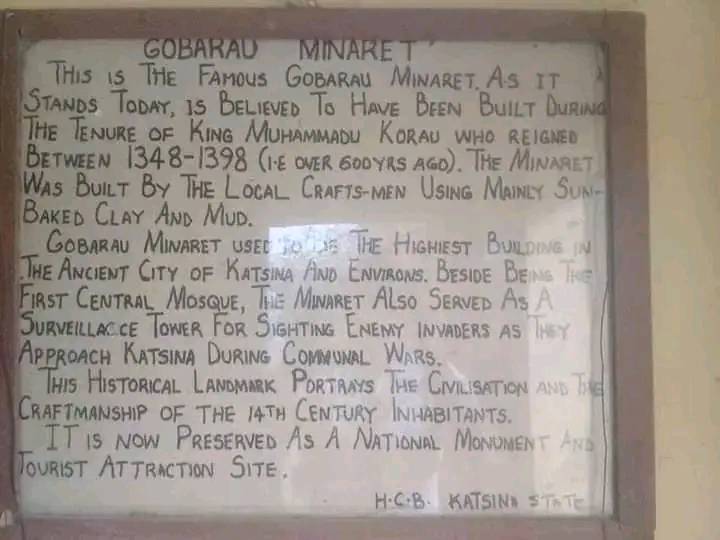 GOBARAU MINARET
THIS IS THE FAMOUS GOBARAU MINARET. AS IT
STANDS TODAY, IS BELIEVED TO HAVE BEEN BUILT DURING
THE TENURE OF KING MUHAMMADU KORAU WHO REIGNED
BETWEEN 1348-1398 (I.E OVER 600YRS AGO). THE MINARET
WAS BUILT BY THE LOCAL CRAFTS-MEN USING MAINLY SUN-
BAKED CLAY AND MUD.
GOBARAU MINARET USED TO BE THE HIGHIEST BUILDING IN
THE ANCIENT CITY OF KATSINA AND ENVIRONS. BESIDE BEING THE
FIRST CENTRAL MOSQUE, THE MINARET ALSO SERVED AS A
SURVEILLACCE TOWER FOR SIGHTING ENEMY INVADERS AS THEY
APPROACH KATSINA DURING COMMUNAL WARS.
THIS HISTORICAL LANDMARK PORTRAYS THE CIVILISATION AND THE
CRAFTMANSHIP OF THE 14TH CENTURY INHABITANTS.
IT IS NOW PRESERVED AS A NATIONAL MONUMENT AND
TOURIST ATTRACTION SITE.
H.C.B. KATSINA STATE